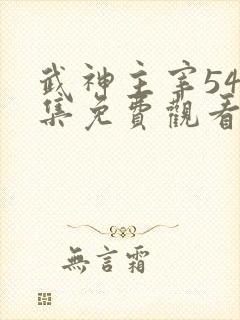 武神主宰54
集免費觀看
無言霜